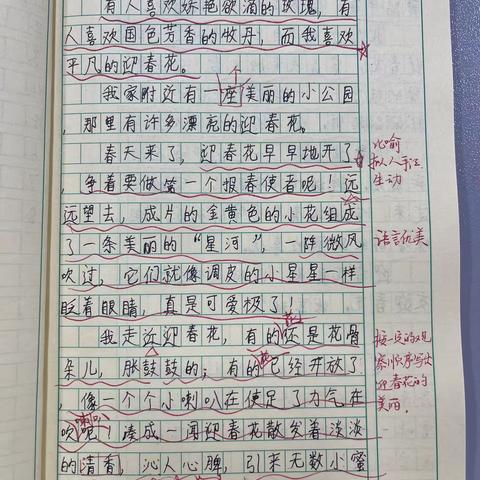 有人喜欢娇艳欲滴的玫瑰,有
人喜欢国色芳香的牡丹,而我喜欢
平凡的迎春花。
个
我家附近有一座美丽的小公园
,那里有许多漂亮的迎春花。
春天来了,迎春花早早地开了
比喻
,争着要做第一个报春使者呢!远
拟人手法
生动
远望去,成片的金黄色的小花组成
了一条美丽的“星河”,一阵微风
语言优美
吹过,它们就像调皮的小星星一样
眨着眼睛,真是可爱极了!
我走近迎春花,有的还是花骨
花
朵儿,胀鼓鼓的;有的已经开放了
花
按一定的观
察顺序写出
迎春花的
美丽.
,像一个个小喇叭在使足了力气在
吹呢!凑成一闻迎春花散发着淡淡
喇叭
的清香,沁人心脾,引来无数小蜜